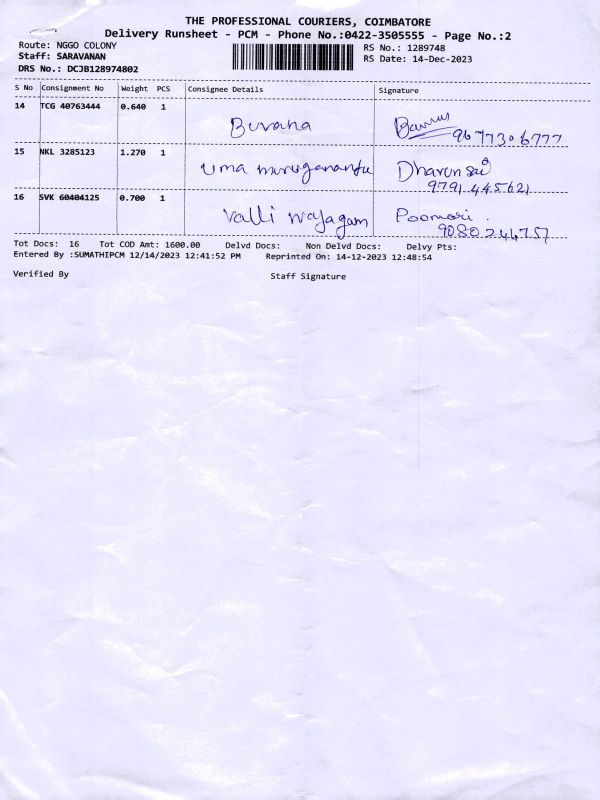 THE PROFESSIONAL COURIERS, COIMBATORE
Delivery Runsheet - PCM - Phone No.:0422-3505555 - Page No.:2
Route: NGGO COLONY
RS No.: 1289748
Staff: SARAVANAN
RS Date: 14-Dec-2023
DRS No.: DCJB128974802
S No Consignment No Weight PCS Consignee Details Signature
14 TCG 40763444 0.640 1
Buvana
9677306777
15 NKL 3285123 1.270 1
Uma muruganantu Dharun sai
9791445621
16 SVK 60404125 0.700 1
Valli nayagam Poomari.
9080244757
Tot Docs: 16 Tot COD Amt: 1600.00 Delvd Docs: Non Delvd Docs: Delvy Pts:
Entered By :SUMATHIPCM 12/14/2023 12:41:52 PM Reprinted On: 14-12-2023 12:48:54
Verified By Staff Signature